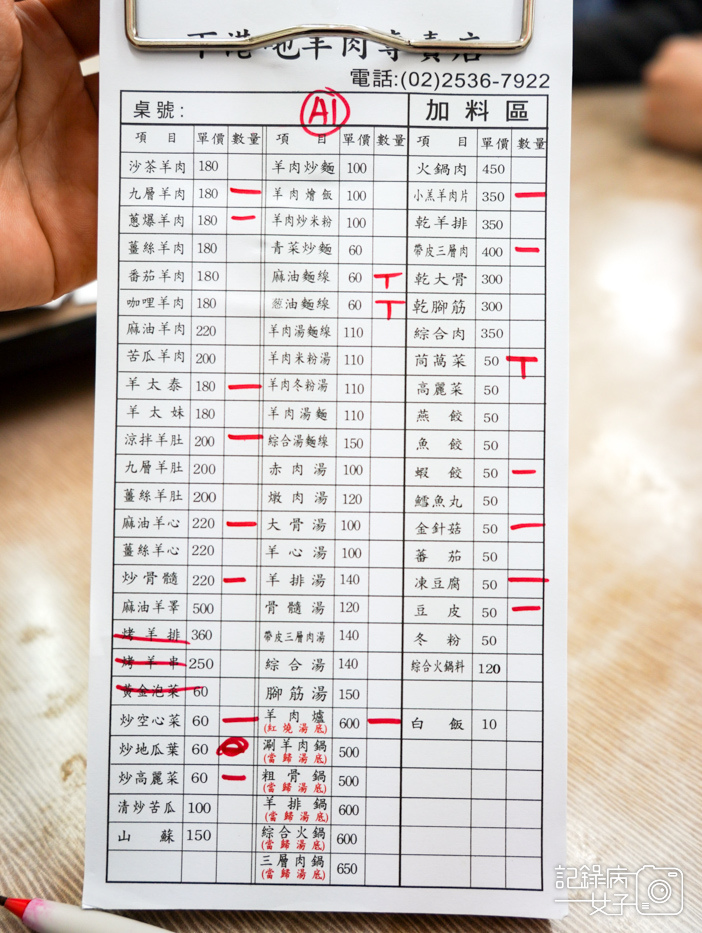 下港 地羊肉專賣店
電話:(02)2536-7922
桌號: A1 加料區
項目 單價 數量 項目 單價 數量 項目 單價 數量
沙茶羊肉 180 羊肉炒麵 100 火鍋肉 450
九層羊肉 180 一 羊肉燴飯 100 小羔羊肉片 350 一
蔥爆羊肉 180 一 羊肉炒米粉 100 乾羊排 350
薑絲羊肉 180 青菜炒麵 60 帶皮三層肉 400 一
番茄羊肉 180 麻油麵線 60 T 乾大骨 300
咖哩羊肉 180 葱油麵線 60 T 乾腳筋 300
麻油羊肉 220 羊肉湯麵線 110 綜合肉 350
苦瓜羊肉 200 羊肉米粉湯 110 茼萵菜 50 T
羊太泰 180 一 羊肉冬粉湯 110 高麗菜 50
羊太妹 180 羊肉湯麵 110 燕餃 50
涼拌羊肚 200 一 綜合湯麵線 150 魚餃 50
九層羊肚 200 赤肉湯 100 蝦餃 50 一
薑絲羊肚 200 燉肉湯 120 鱈魚丸 50
麻油羊心 220 一 大骨湯 100 金針菇 50 一
薑絲羊心 220 羊心湯 100 蕃茄 50
炒骨髓 220 一 羊排湯 140 凍豆腐 50 一
麻油羊睪 500 骨髓湯 120 豆皮 50 一
烤羊排 360 帶皮三層肉湯 140 冬粉 50
烤羊串 250 綜合湯 140 綜合火鍋料 120
黃金泡菜 60 腳筋湯 150
炒空心菜 60 一 羊肉爐 600 一 白飯 10
(紅燒湯底)
炒地瓜葉 60 涮羊肉鍋 500
(當歸湯底)
炒高麗菜 60 一 粗骨鍋 500
(當歸湯底)
清炒苦瓜 100 羊排鍋 600
(當歸湯底)
山蘇 150 綜合火鍋 600
(當歸湯底)
三層肉鍋 650
(當歸湯底)
記錄病
女子